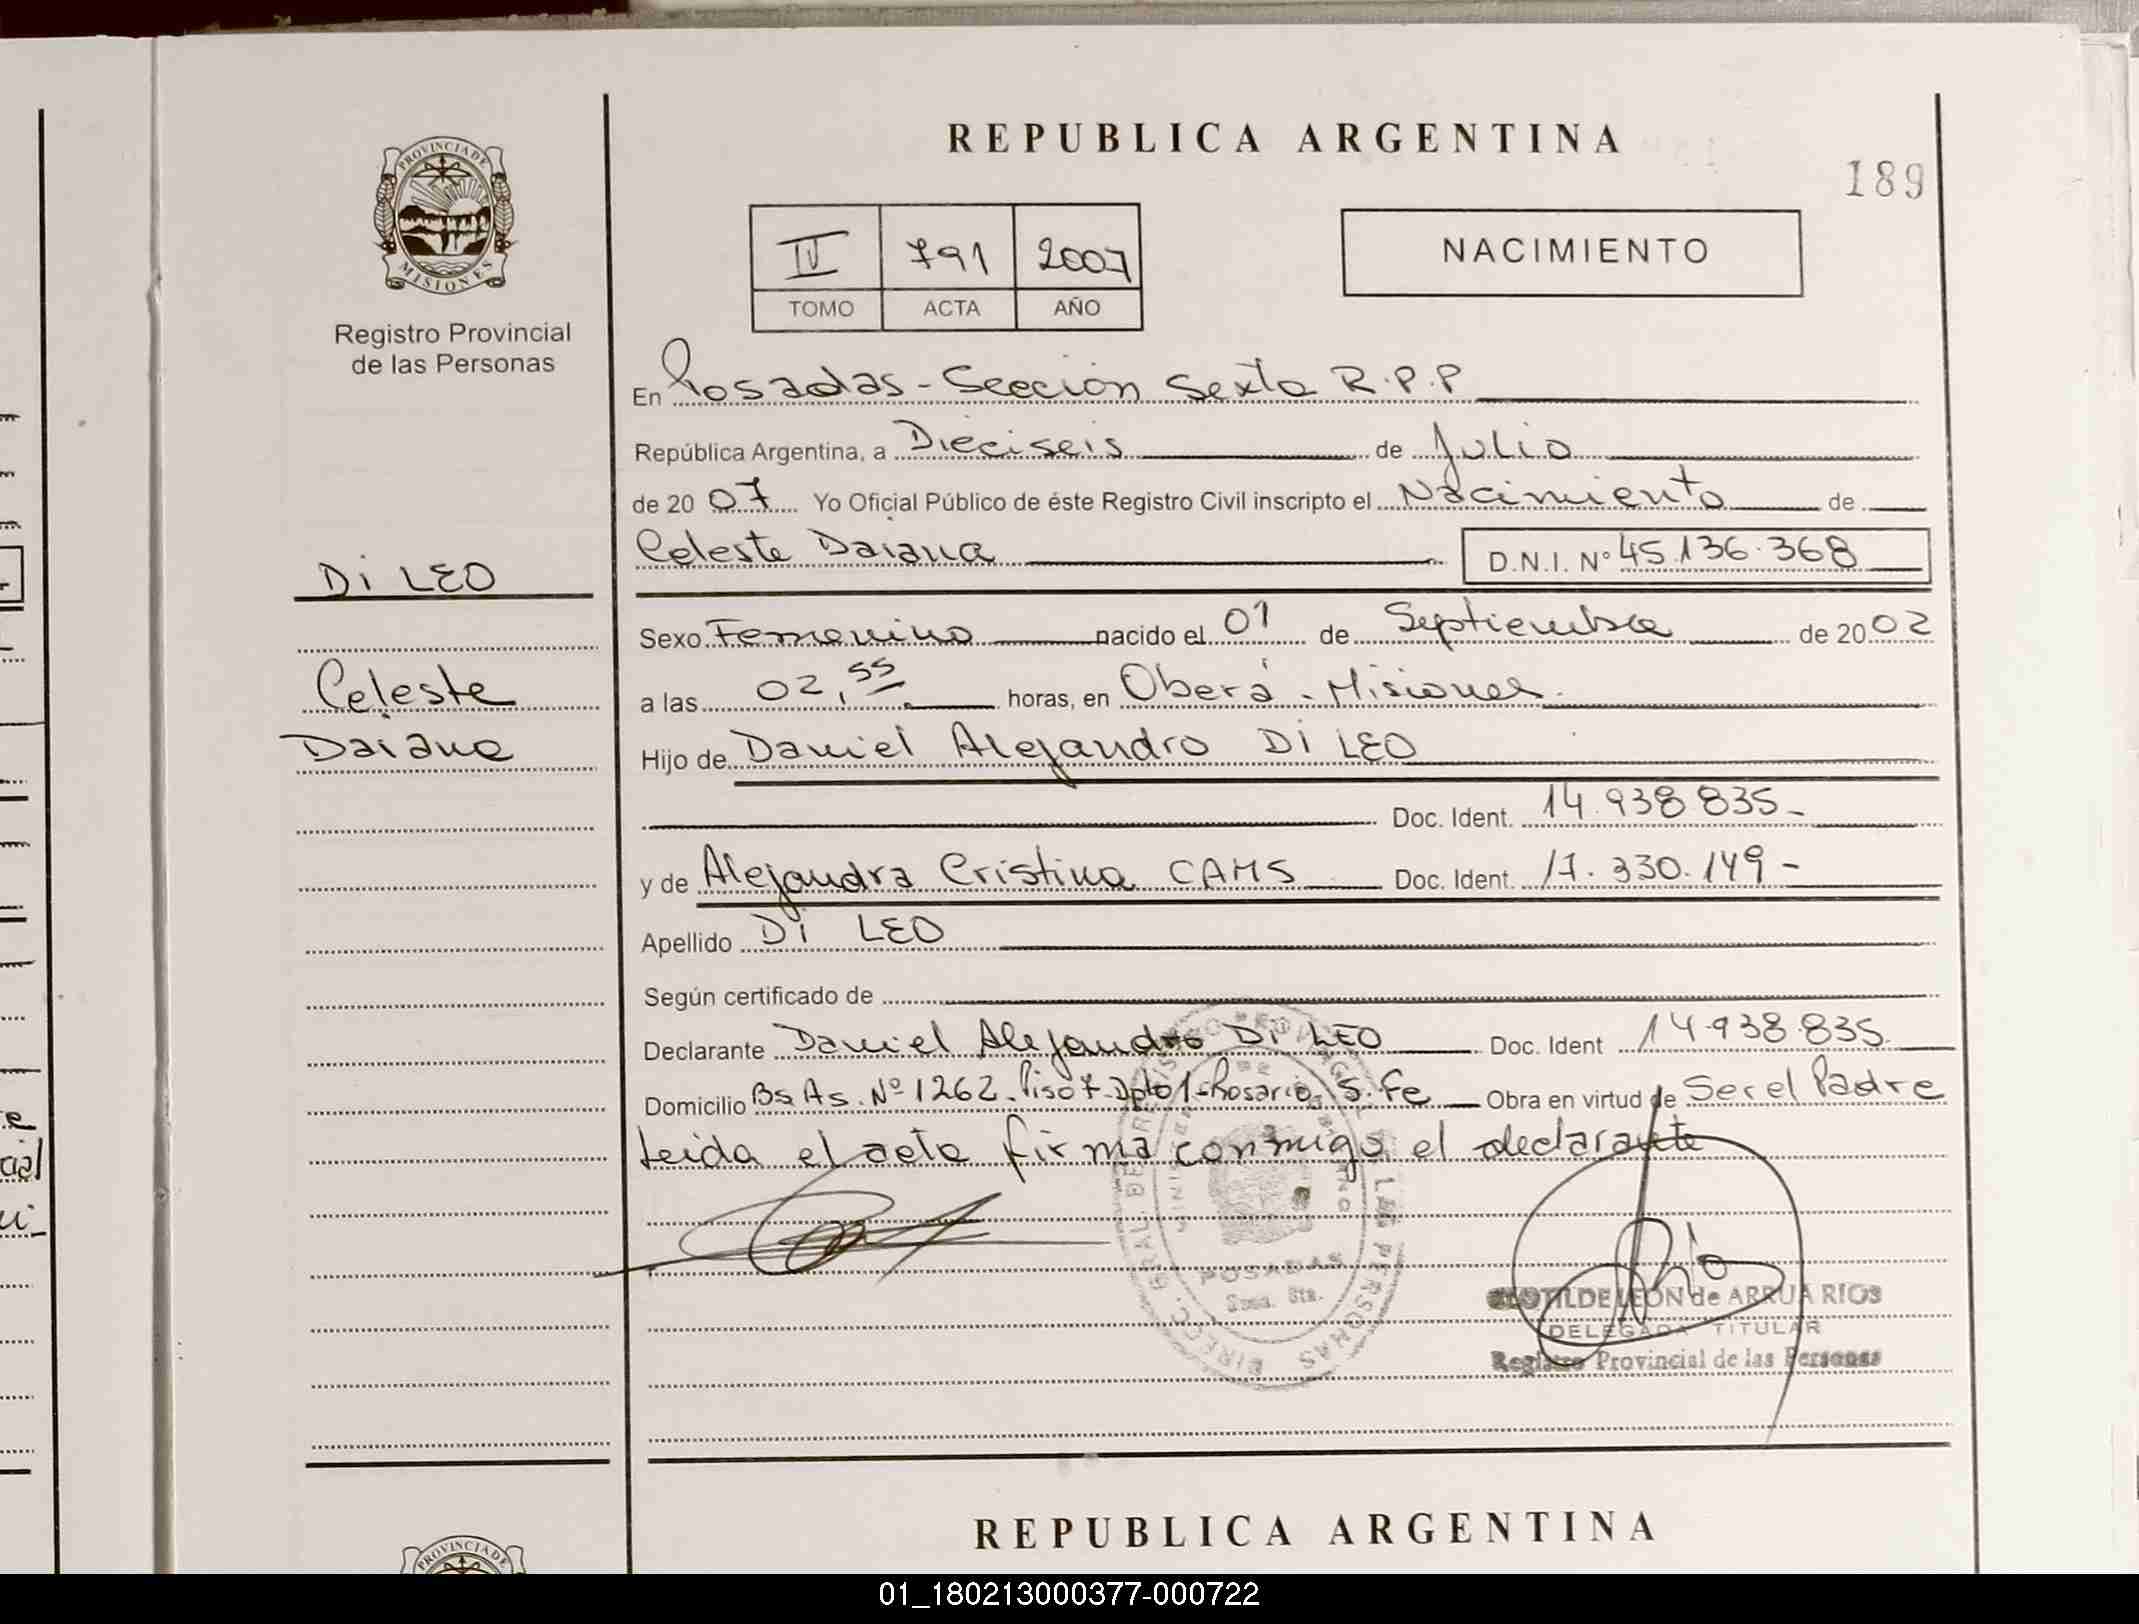 REPUBLICA ARGENTINA
189
PROVINCIA DE
MISIONES
Registro Provincial
de las Personas
IV 791 2007
TOMO ACTA AÑO
NACIMIENTO
En Posadas - Sección Sexta R.P.P
República Argentina, a Dieciseis de Julio
de 20 07 Yo Oficial Público de éste Registro Civil inscripto el Nacimiento de
Celeste Daiana D.N.I. Nº 45.136.368
Di LEO
Celeste
Daiana
Sexo Femenino nacido el 01 de Septiembre de 20 02
a las 02,55 horas, en Oberá - Misiones.
Hijo de Daniel Alejandro Di LEO
Doc. Ident. 14.938 835-
y de Alejandra Cristina CAMS Doc. Ident. 17.330.149-
Apellido Di LEO
Según certificado de
Declarante Daniel Alejandro Di LEO Doc. Ident 14.938.835.
Domicilio Bs As. Nº 1262. Piso 7-Dpto 1-Rosario, S. Fe Obra en virtud de Ser el Padre
Leida el acta firma conmigo el declarante
POSADAS
Secc. 6ta.
DIRECC. GRAL. DE LAS PERSONAS
CLOTILDE LEON de ARRUA RIOS
DELEGADA TITULAR
Registro Provincial de las Personas
REPUBLICA ARGENTINA
PROVINCIA DE
01_180213000377-000722